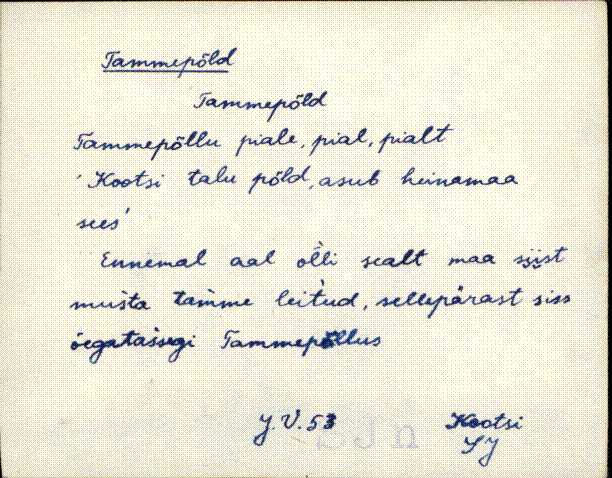 Tammepõld
Tammepõld
Tammepõllu piale, pial, pialt
'Kootsi talu põld, asub heinamaa
sees'
Ennemal aal õlli sealt maa siist
musta tamme leitud, sellepärast siss
õegatassegi Tammepõllus
J. V. 53 Kootsi
SJ